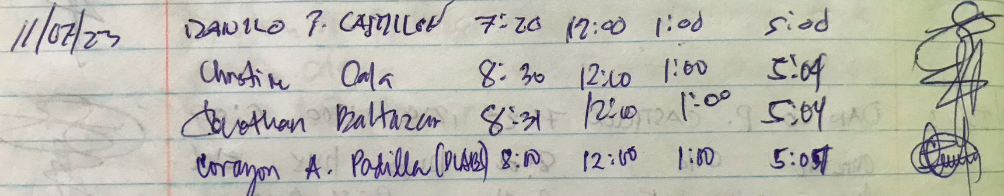 11/07/23 DANILO P. CASTILLO 7:20 12:00 1:00 5:00
Christine Oala 8:30 12:00 1:00 5:04
Jonathan Baltazar 8:31 12:00 1:00 5:04
Corazon A. Padilla 8:00 12:00 1:00 5:05